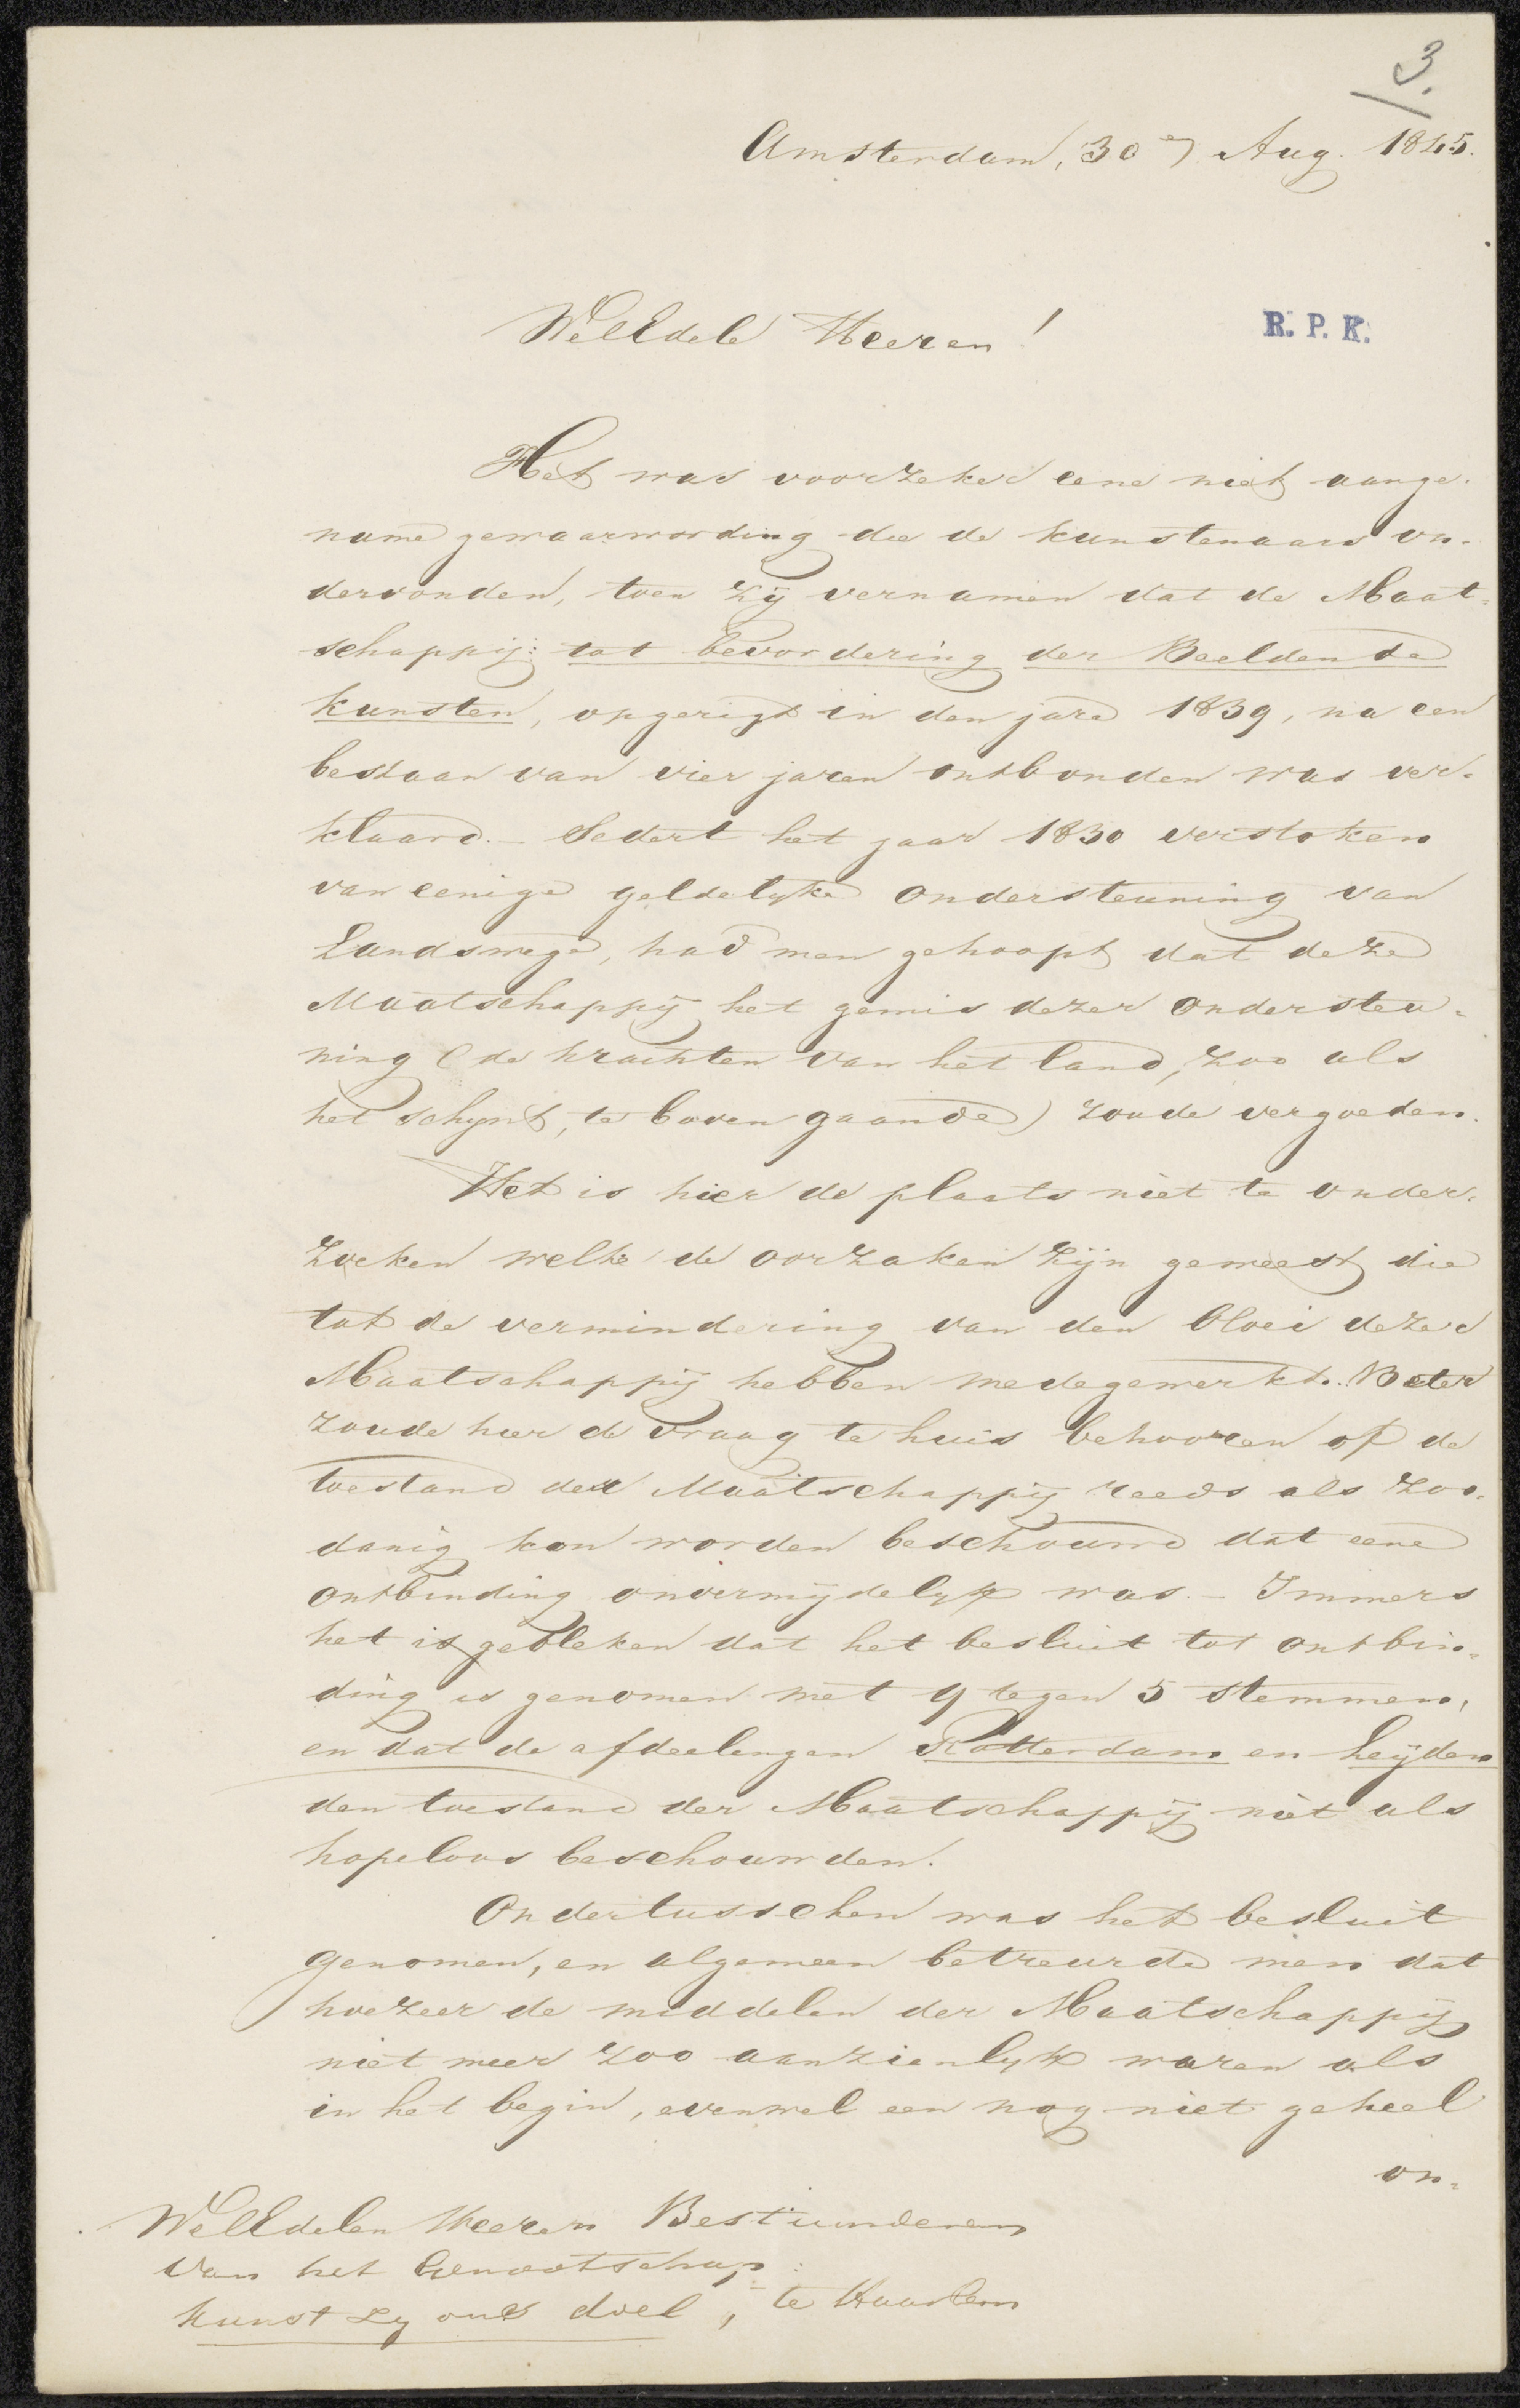 3.
Amsterdam, 30en Aug. 1845.
WelEdele Heeren!
R. P. K.
Het was voorzeker eene niet aange-
name gewaarwording die de kunstenaars on-
dervonden, toen zij vernamen dat de Maat-
schappij: tot bevordering der Beeldende
kunsten, opgerigt in den jare 1839, na een
bestaan van vier jaren ontbonden was ver-
klaard. - Sedert het jaar 1830 verstoken
van eenige geldelyke ondersteuning van
Landswege, had men gehoopt dat deze
Maatschappij het gemis dezer ondersteu-
ning (de krachten van het land, zoo als
het schynt, te boven gaande) zoude vergoeden.
Het is hier de plaats niet te onder-
zoeken welke de oorzaken zijn geweest die
tot de vermindering van den bloei dezer
Maatschappij hebben medegewerkt. Beter
zoude hier de vraag te huis behooren of de
toestand der Maatschappij reeds als zoo-
danig kon worden beschouwd dat eene
ontbinding onvermijdelyk was. - Immers
het is gebleken dat het besluit tot ontbin-
ding is genomen met 9 tegen 5 stemmen,
en dat de afdeelingen Rotterdam en Leijden
den toestand der Maatschappij niet als
hopeloos beschouwden.
Ondertusschen was het besluit
genomen, en algemeen betreurde men dat
hoezeer de middelen der Maatschappij
niet meer zoo aanzienlyk waren als
in het begin, evenwel een nog niet geheel
on-
WelEdelen Heeren Bestuurderen
van het Genootschap:
Kunst zy ons doel, te Haarlem